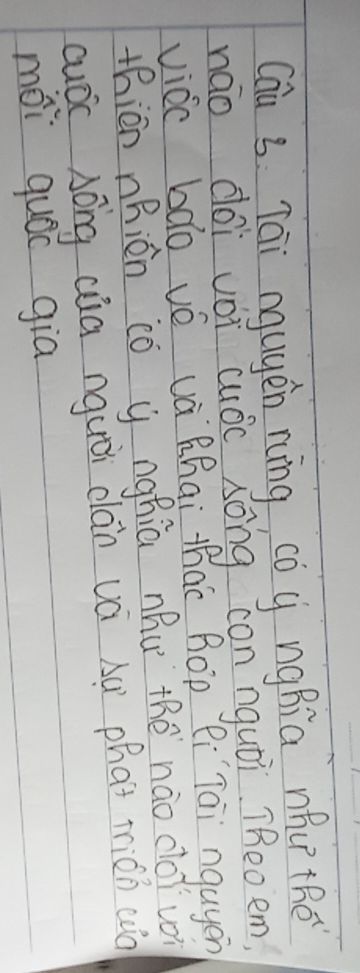 Câu 3: Tài nguyên rừng có ý nghĩa như thế
nào đối với cuộc sống con người. Theo em,
việc bảo vệ và khai thác hợp lí Tài nguyên
thiên nhiên có ý nghĩa như thế nào đối với
cuộc sống của người dân và sự phát triển của
mỗi quốc gia